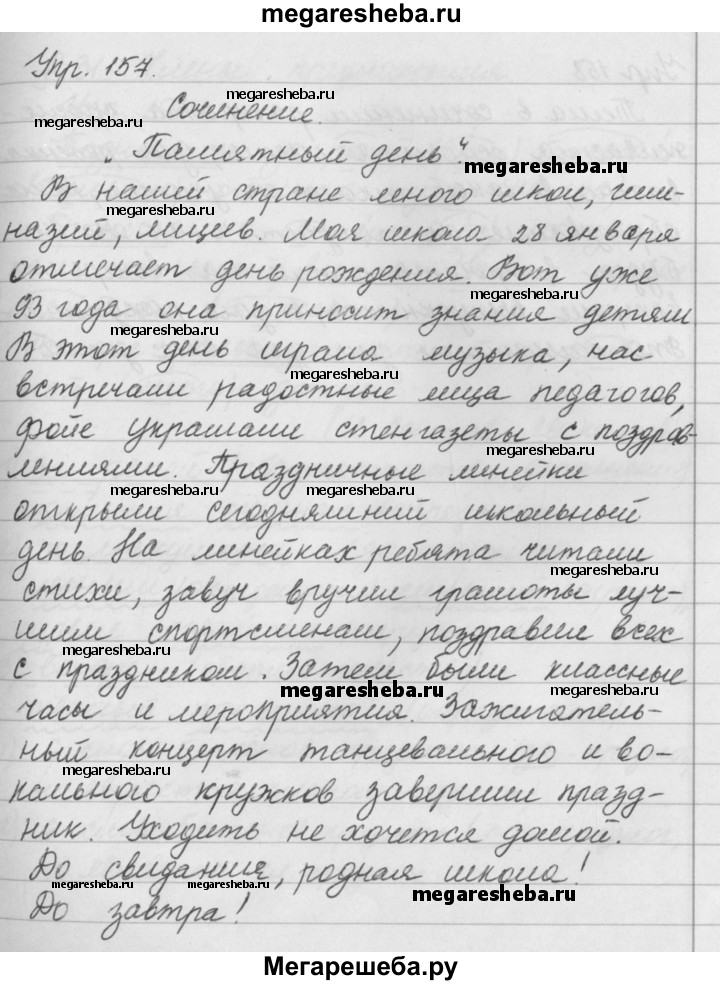 megaresheba.ru
Упр. 157.
megaresheba.ru
Сочинение.
megaresheba.ru
„Памятный день“.
megaresheba.ru
В нашей стране много школ, гим-
megaresheba.ru
назий, лицеев. Моя школа 28 января
отмечает день рождения. Вот уже
megaresheba.ru
93 года она приносит знания детям
megaresheba.ru
В этот день играла музыка, нас
megaresheba.ru
встречали радостные лица педагогов,
фойе украшали стенгазеты с поздрав-
лениями. Праздничные линейки
megaresheba.ru megaresheba.ru
открыли сегодняшний школьный
день. На линейках ребята читали
megaresheba.ru
стихи, завуч вручил грамоты луч-
шим спортсменам, поздравил всех
megaresheba.ru
с праздником. Затем были классные
megaresheba.ru megaresheba.ru
часы и мероприятия. Зажигатель-
ный концерт танцевального и во-
megaresheba.ru
кального кружков завершил празд-
ник. Уходить не хочется домой.
До свидания, родная школа!
megaresheba.ru megaresheba.ru megaresheba.ru
До завтра!
Мегарешеба.ру